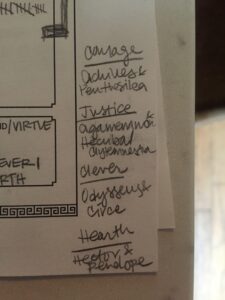 courage
Achilles &
Penthesilea
Justice
agamemnon &
Clytemnestra
clever
Odysseus &
Circe
Hearth
Hector &
Penelope
D/VIRTUE
EVER/
RTH